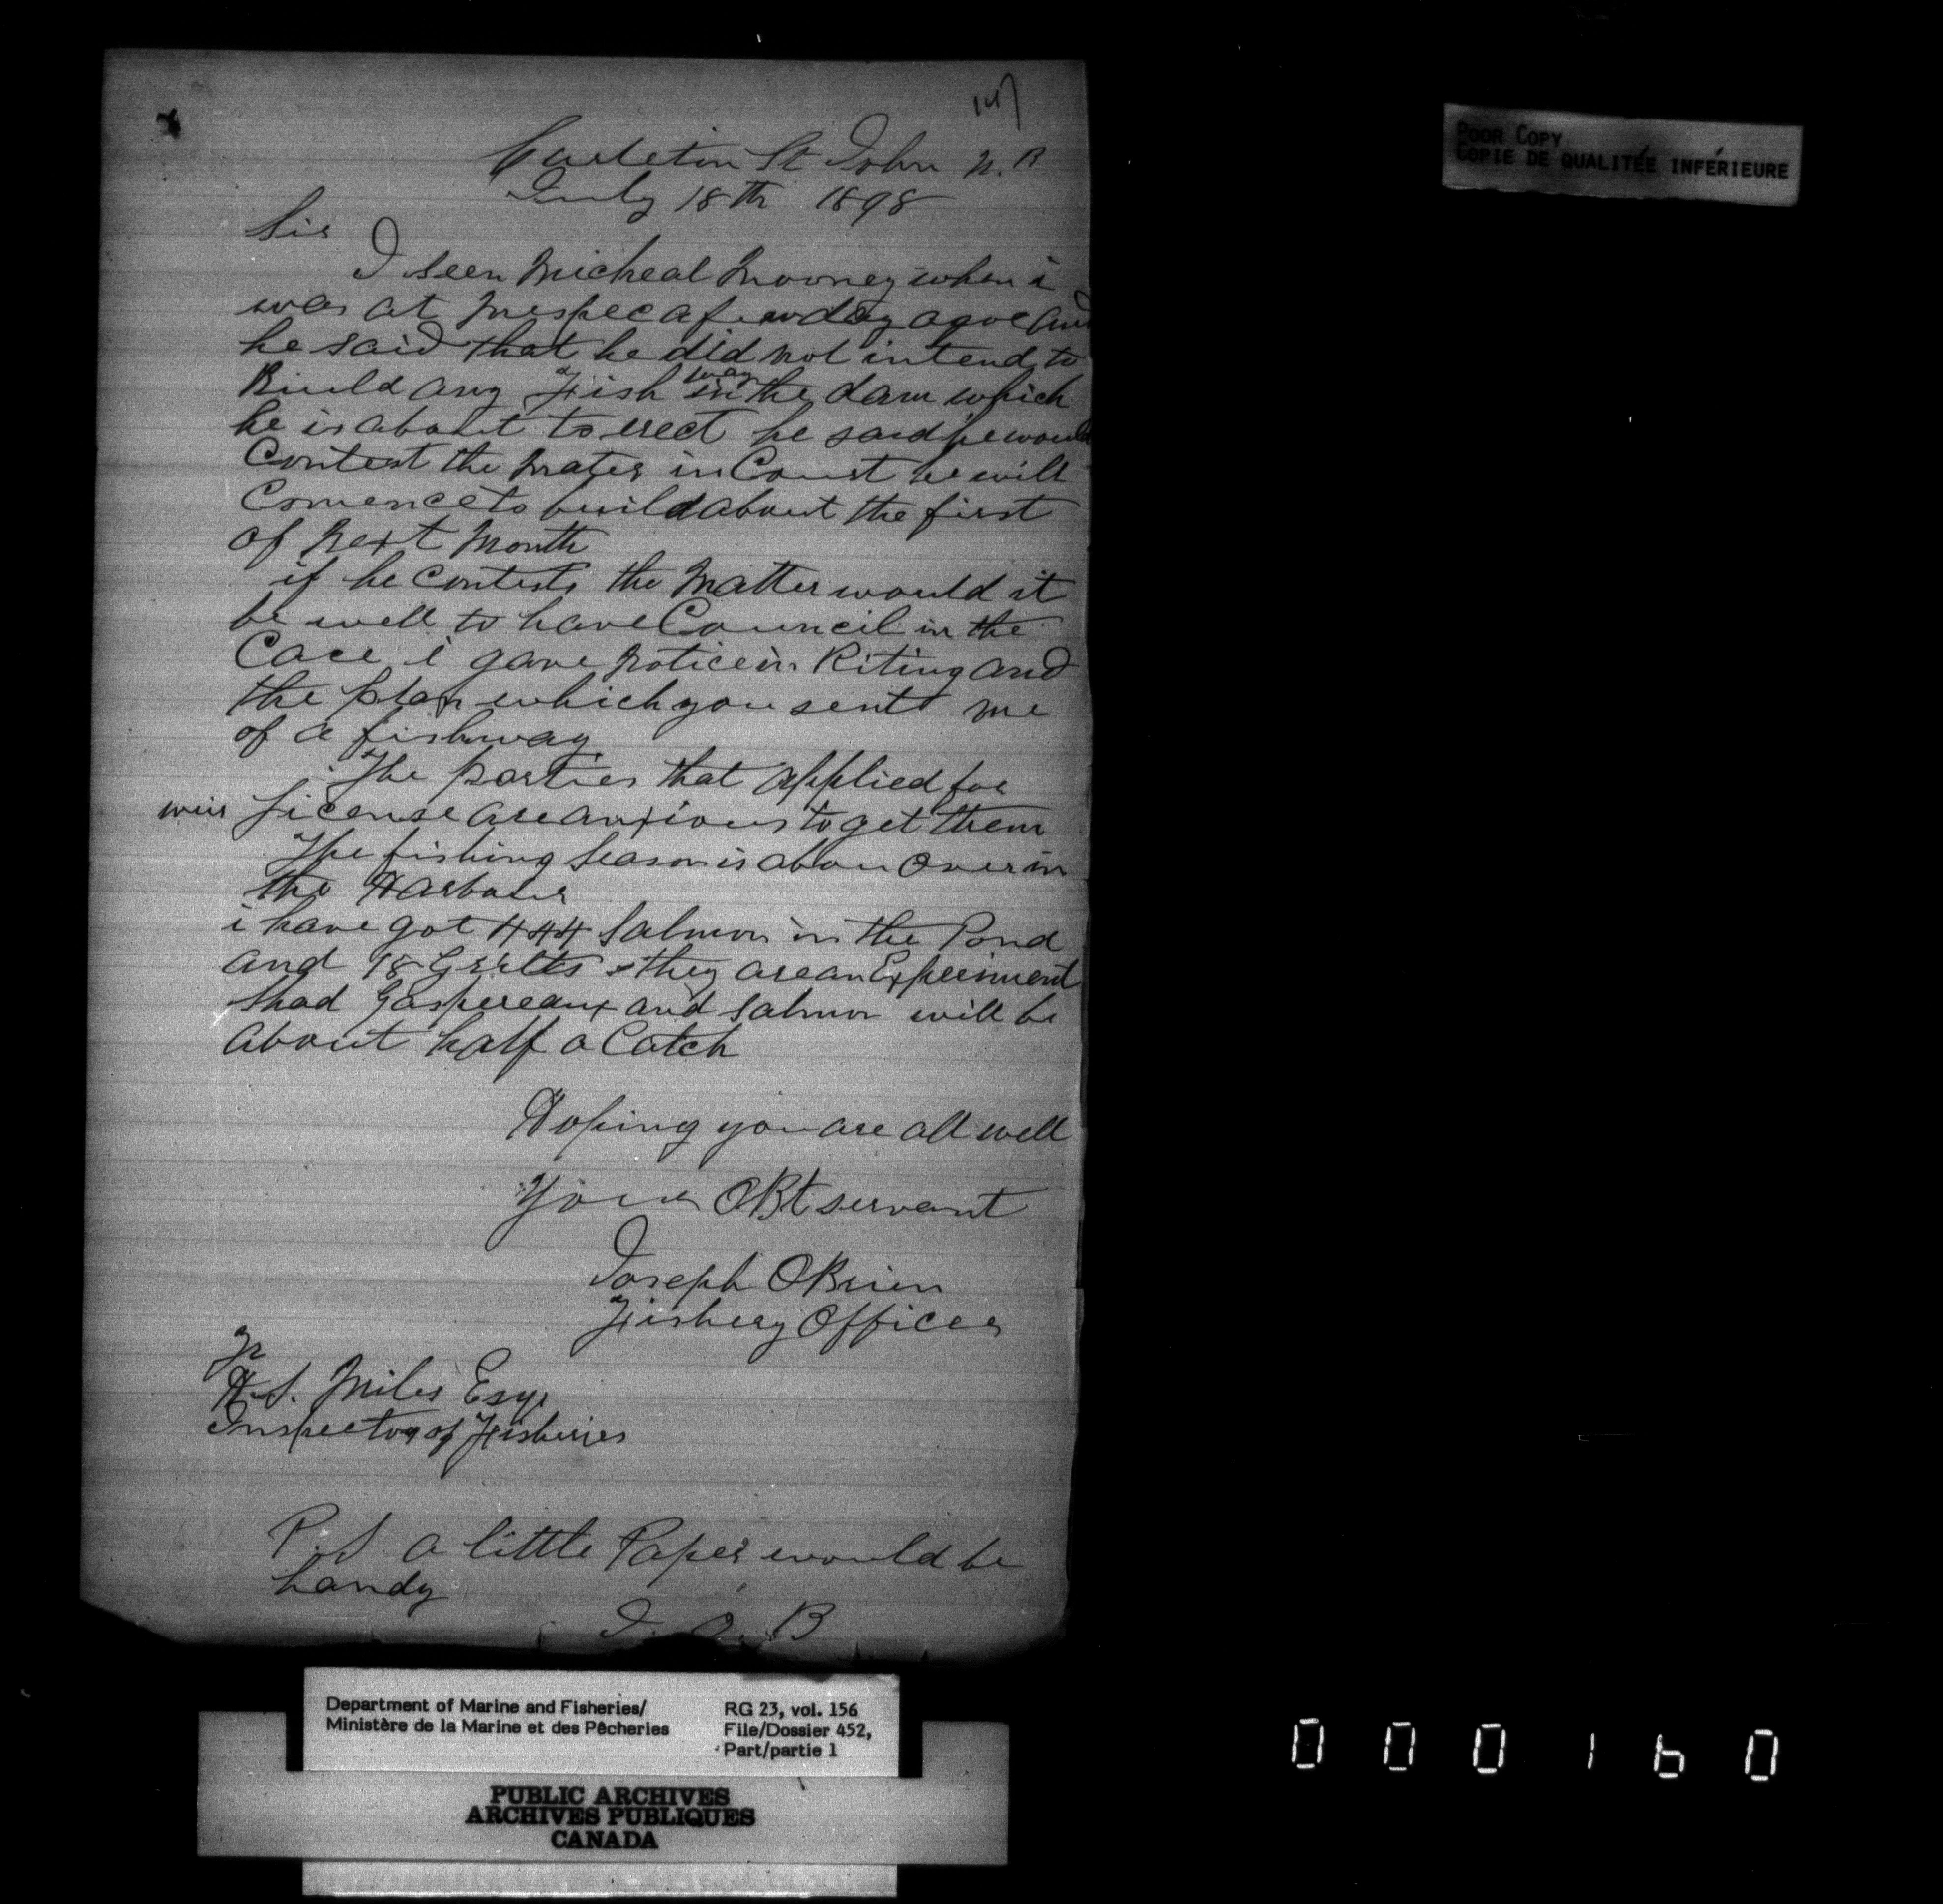 147
Carleton St John N.B
July 18th 1898
Sir
I seen Micheal Mooney when i
was at Mispec a few day agoe and
he said that he did not intend to
Biuld any Fish way in the dam which
he is about to erect he said he would
Contest the Mater in Court he will
Comence to build about the first
of Next Month
if he Contests the Matter would it
be well to have Council in the
Case i gave Notice in Riting and
the plan which you sent me
of a fishway
The parties that applied for
weir License are anxious to get them
The fishing Season is abou Over in
the Harbour
i have got 444 Salmon in the Pond
and 98 Grilts they are an Expeirment
Shad Gaspereaux and Salmon will be
about half a Catch
Hoping you are all well
Your OBt servant
Joseph OBrien
Fishery Officer
To
H.S. Miles Esqr
Inspector of Fisheries
P.S. a little Paper would be
handy
J. O. B
POOR COPY
COPIE DE QUALITÉE INFÉRIEURE
Department of Marine and Fisheries/
Ministère de la Marine et des Pêcheries
RG 23, vol. 156
File/Dossier 452,
Part/partie 1
PUBLIC ARCHIVES
ARCHIVES PUBLIQUES
CANADA
000160